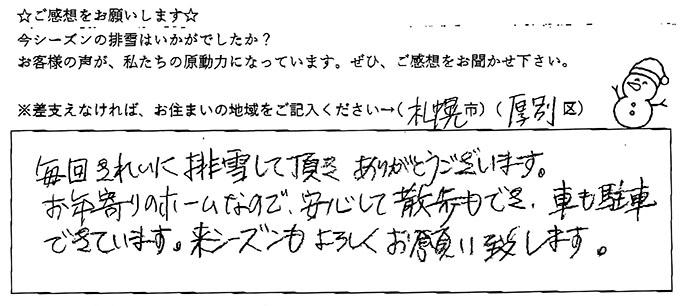 ☆ご感想をお願いします☆
今シーズンの排雪はいかがでしたか？
お客様の声が、私たちの原動力になっています。ぜひ、ご感想をお聞かせ下さい。
※差支えなければ、お住まいの地域をご記入ください→(札幌市)(厚別区)
毎回きれいに排雪して頂き ありがとうございます。
お年寄りのホームなので、安心して散歩もでき、車も駐車
できています。来シーズンもよろしくお願い致します。